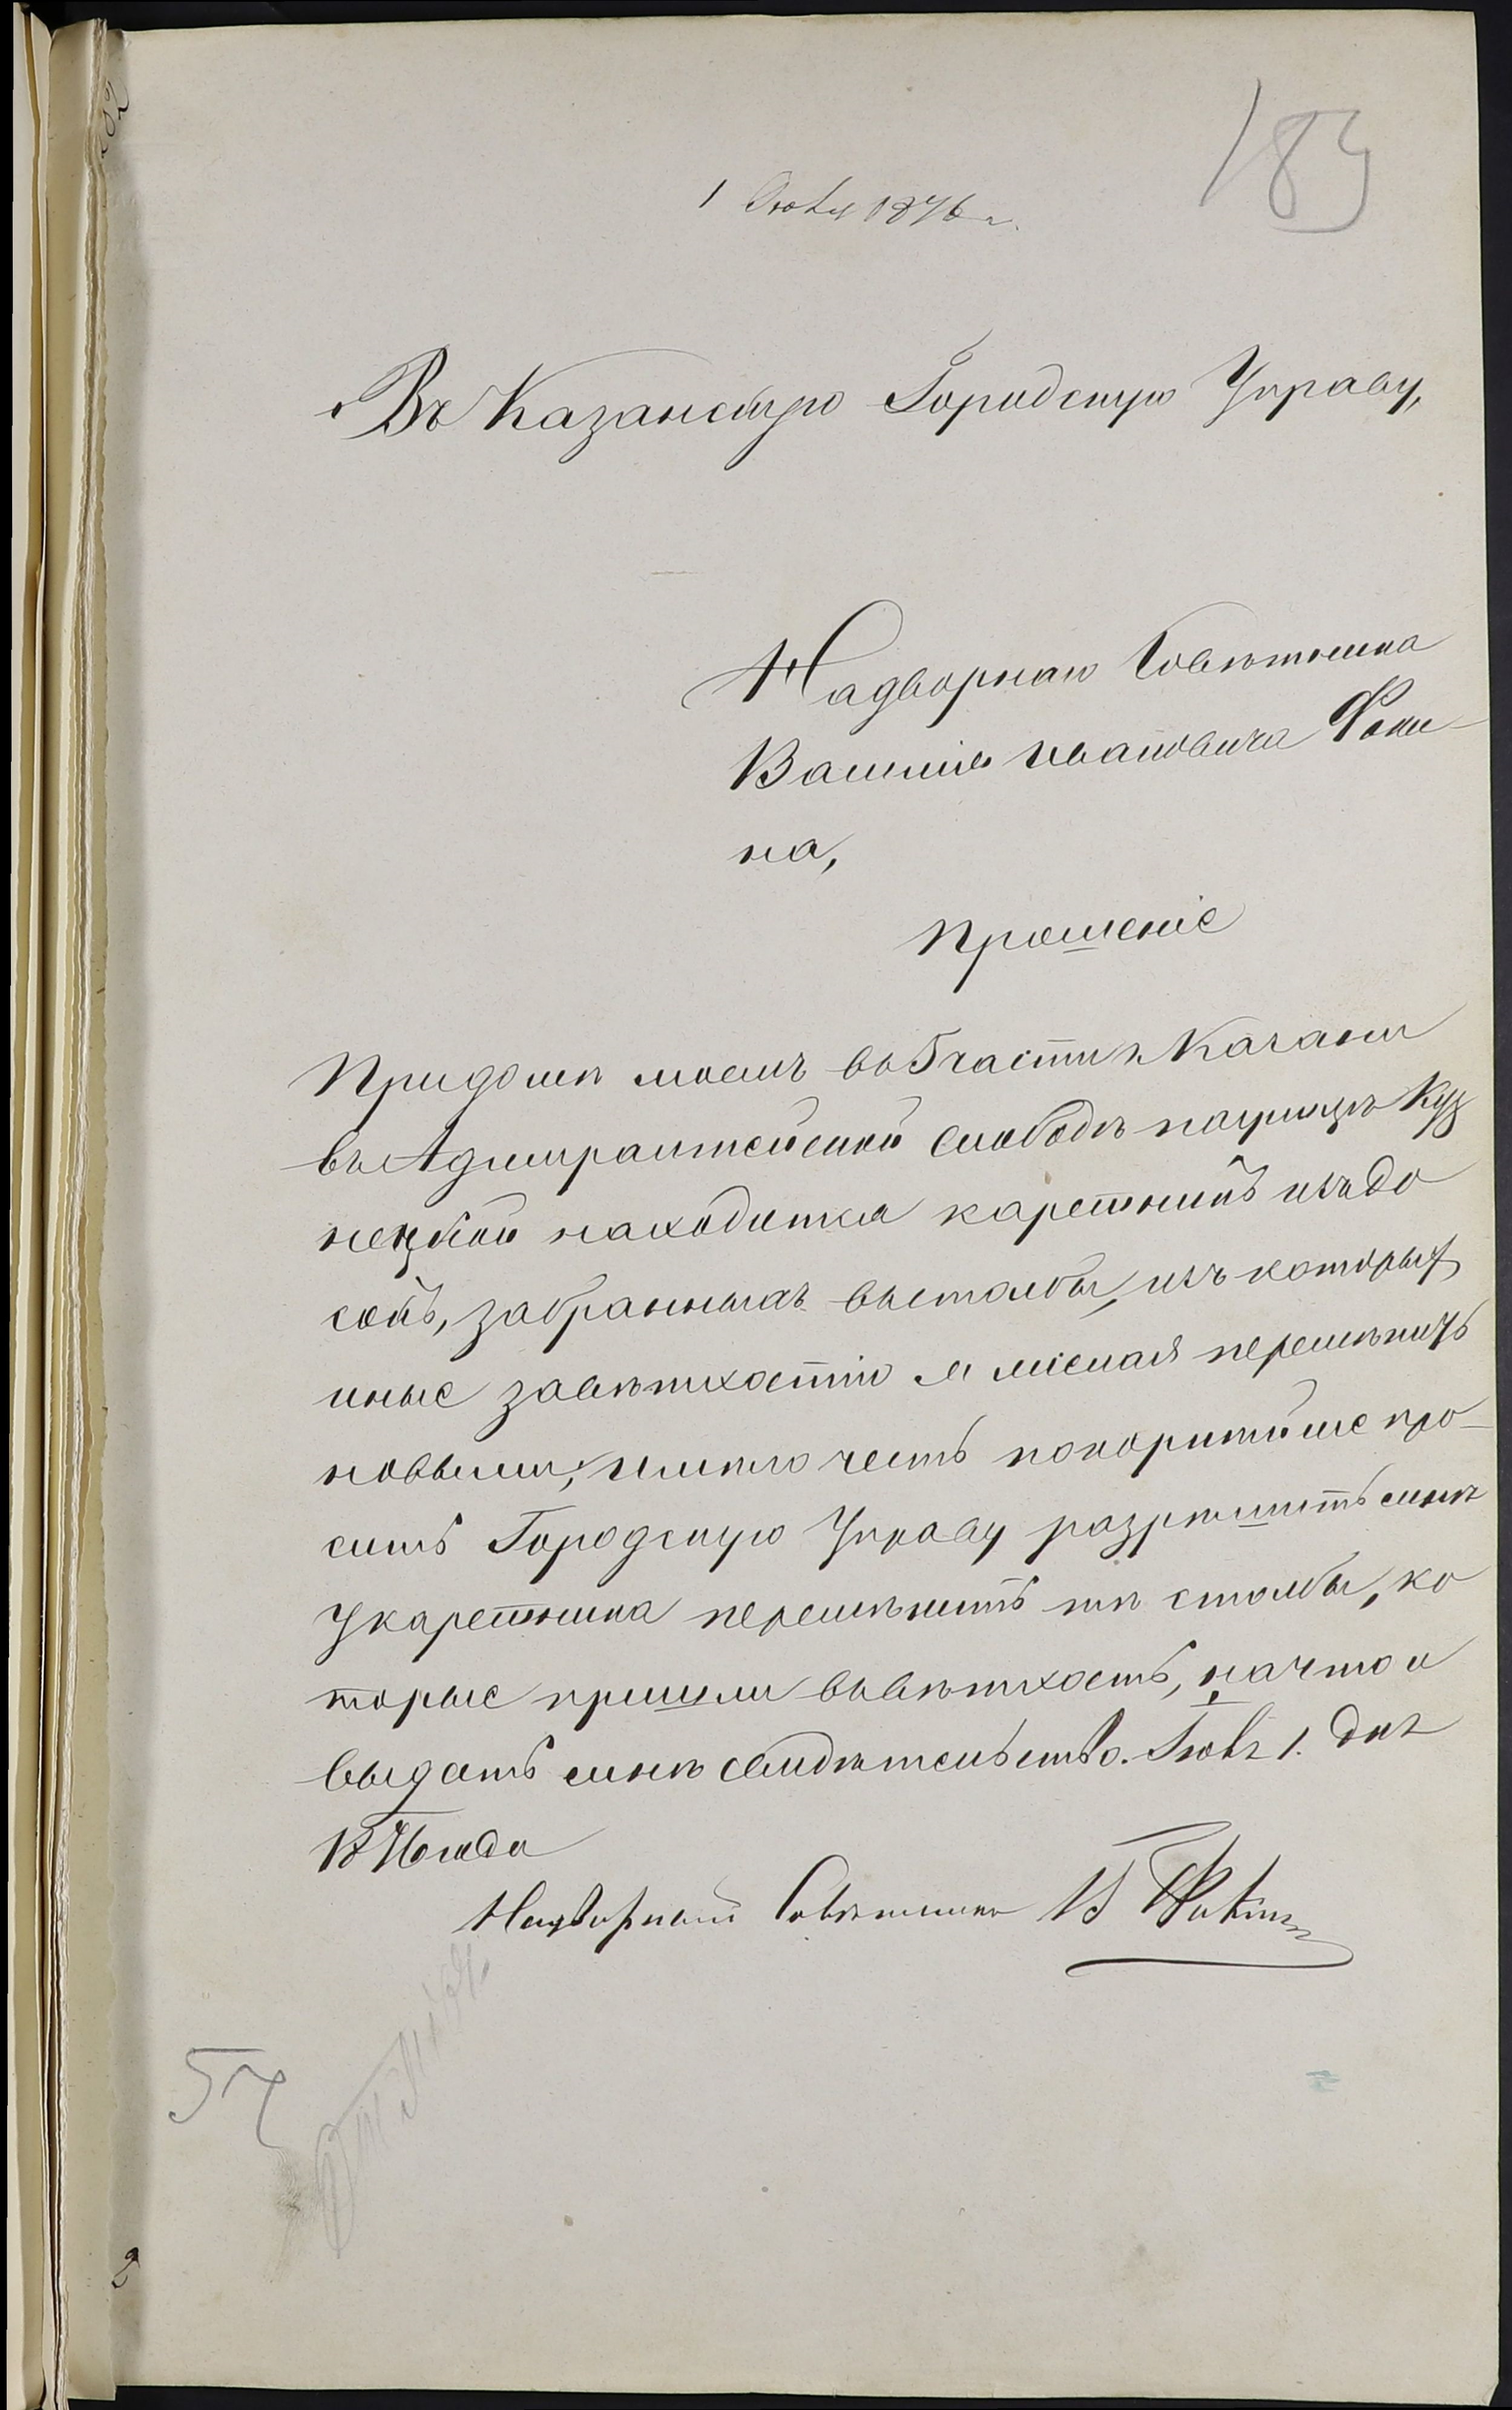 183
1 Июня 1876 г.
Въ Казанскую Городскую Управу,
Надворнаго Советника
Василія Ивановича Фоки-
на,
Прошеніе
При доме моемъ въ 5 части г. Казани
въ Адмиралтейской слободѣ на улицѣ Куз
нецкой находится каретникъ изъ до
сокъ, забранныхъ въ столбы, изъ которых
иные за ветхостію я желая перемѣнить
новыми, имѣю честь покорнѣйше про-
сить Городскую Управу разрѣшить мнѣ
у каретника перемѣнить тѣ столбы, ко
торые пришли въ ветхость, на что и
выдать мнѣ свидѣтельство. Іюня 1. дня
1876 года
Надворный Советникъ В Фокинъ
57